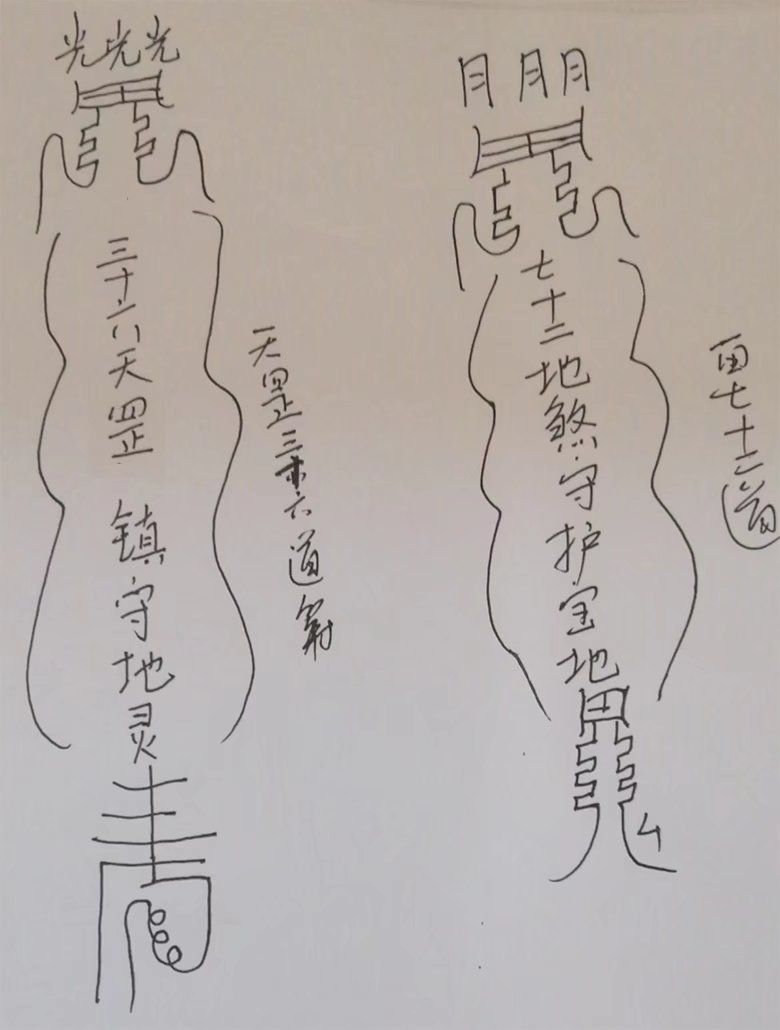 光光光
三十六天罡 镇守地灵
天罡三十六道
月月月
七十二地煞守护宝地
七十二道